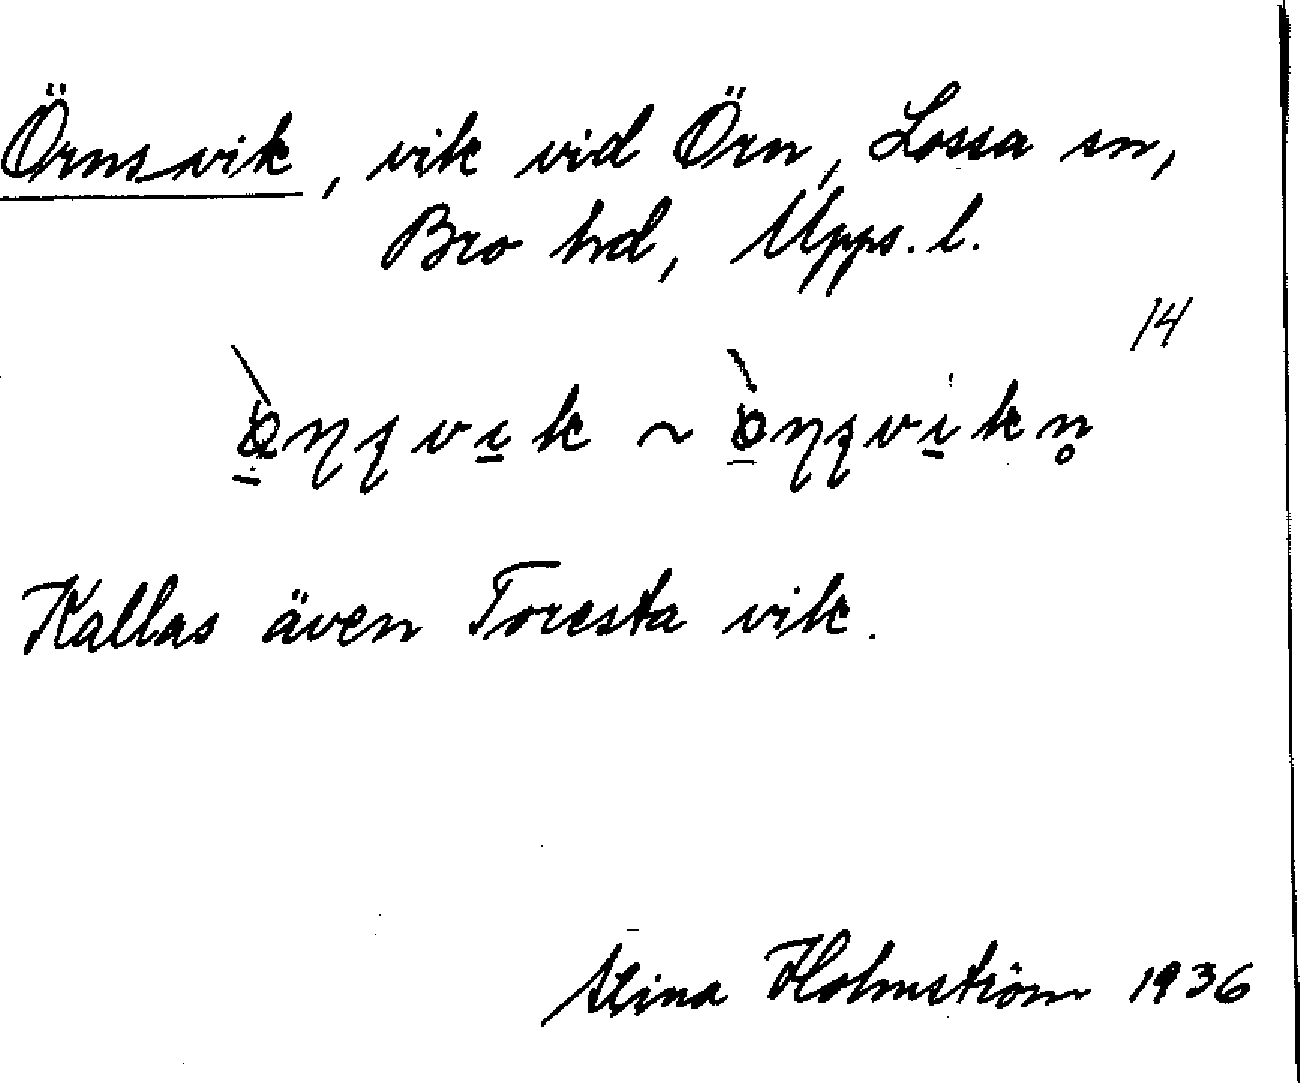 Örnsvik, vik vid Örn, Lossa sn,
Bro hd, Upps. l.
14
Kallas även Toresta vik.
Holmström 1936